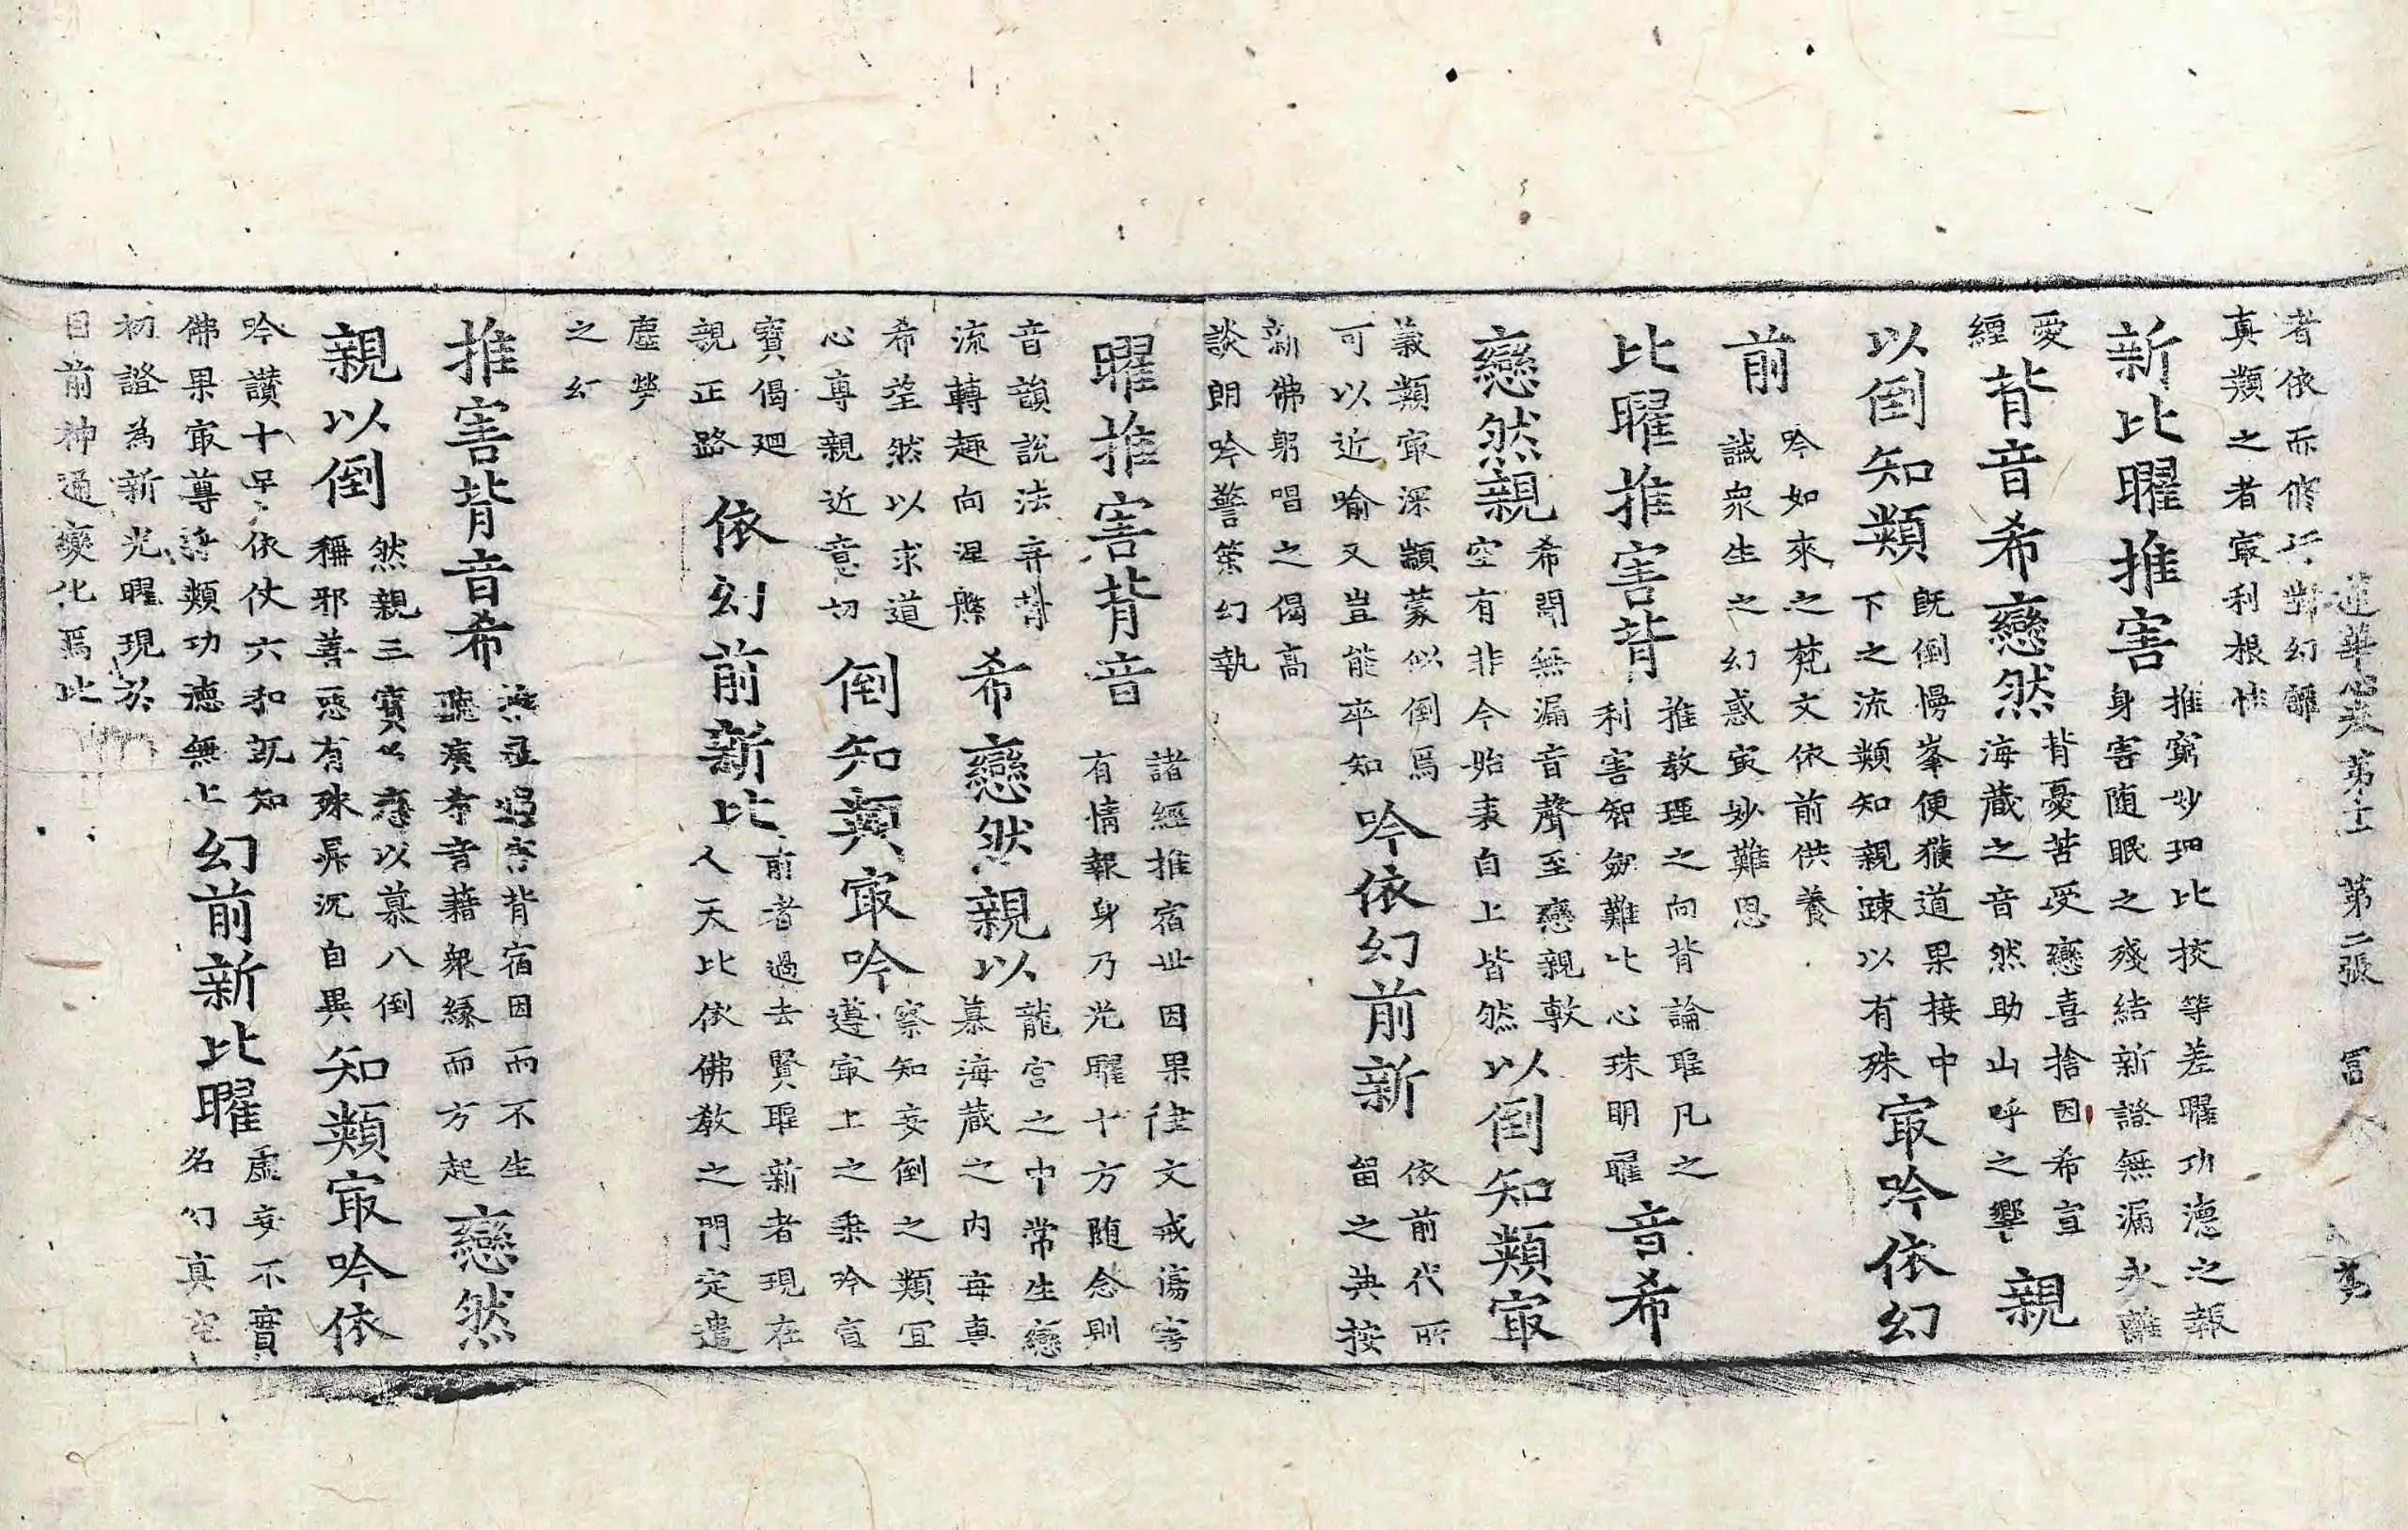 蓮華心 第十一 第二張 冨
者依而脩 對幻 
真類之者㝡利根 
新比曜推害 推窮妙理比挍等差曜功德之報
身害随眠之殘結新證無漏永離
愛
經 背音希戀然 背憂苦受戀喜捨因希宣
海蔵之音然助山呼之響 親
以倒知類 既倒慢峯便獲道果接中
下之流類知親踈以有殊 㝡吟依幻
前 吟如來之梵文依前供養
誡衆生之幻惑㝡妙難思
比曜推害背 推教理之向背論聖凡之
利害智劒難比心珠明曜 音希
戀然親 希聞無漏音聲至戀親教
空有非今始表自上皆然 然以倒知類㝡
義類㝡深顓蒙似倒爲
可以近喻又豈能卒知 吟依幻前新 依前代所
留之典按
新佛躬唱之偈高
談朗吟警策幻執
曜推害背音 諸經推宿世因果律文戒傷害
有情報身乃光曜十方随念則
音韻說法弃背
流轉趣向涅槃 希戀然親以 龍宮之中常生戀
慕海蔵之内每真
希望然以求道
心專親近意切 倒知類㝡吟 察知妄倒之類冝
遵㝡上之乗吟宣
寶偈廻
親正路 依幻前新比 前者過去賢聖新者現在
人天比依佛教之門定遣
塵勞
之幻
推害背音希 害背宿因而不生
聽 音藉衆緣而方起 戀然
親以倒 然親三寶 以慕八倒
稱邪善惡有殊昇沉自異 知類㝡吟依
吟讃十 依仗六和既知
佛果㝡尊 類功德無上 幻前新比曜 虛妄不實
名幻真空
初證為新光曜現於
目前神通變化焉此